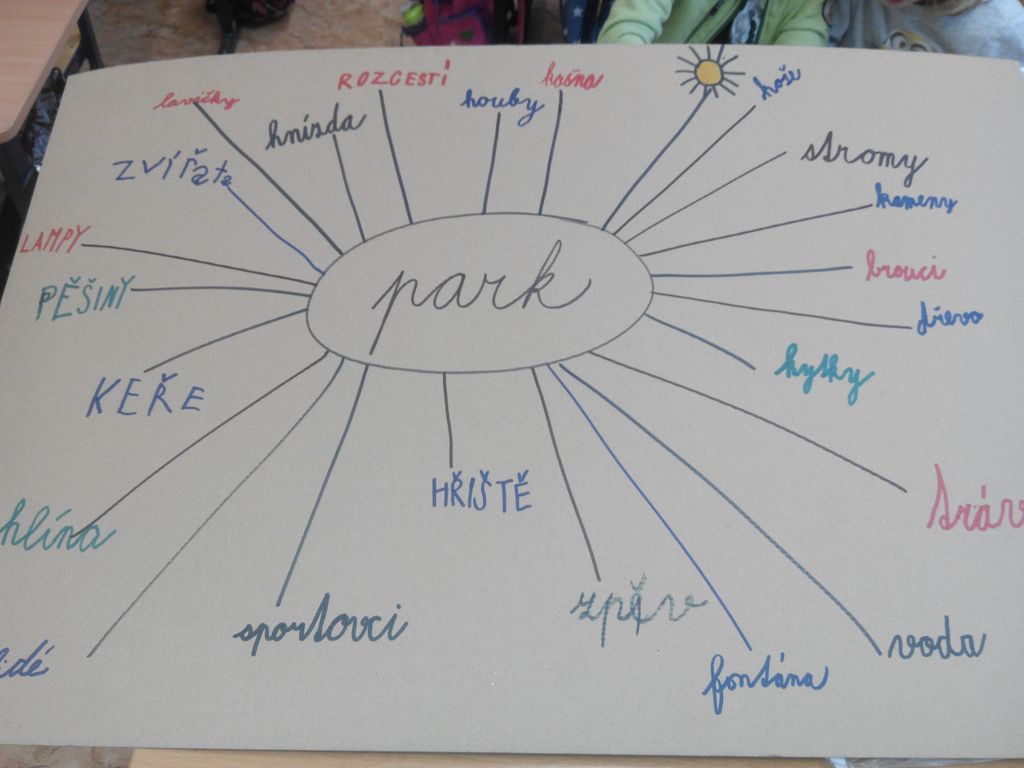 lavičky
ROZCESTÍ
houby
kašna
koše
hnízda
stromy
zvířata
kameny
LAMPY
park
brouci
PĚŠINY
dřevo
kytky
KEŘE
HŘIŠTĚ
tráv
hlína
sportovci
zpěv
voda
idé
fontána